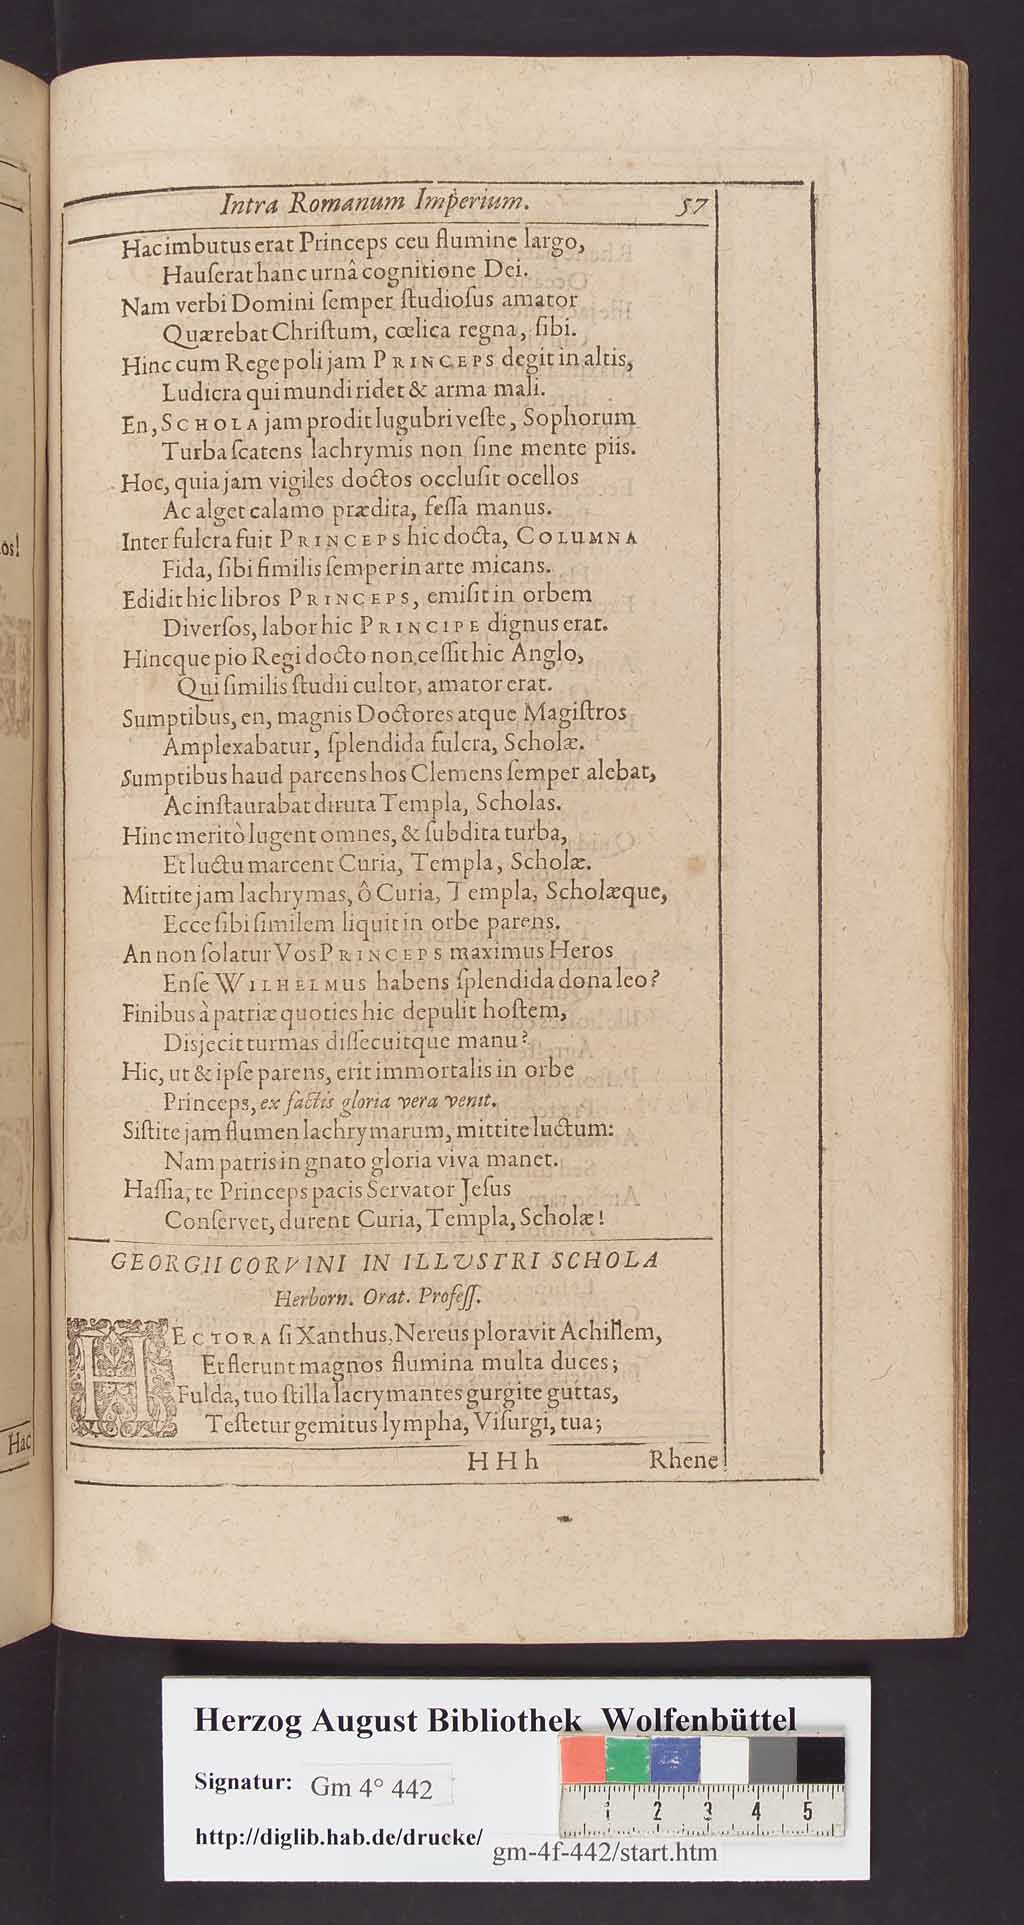 Intra Romanum Imperium. 57
Hac imbutus erat Princeps ceu flumine largo,
Hauſerat hanc urnâ cognitione Dei.
Nam verbi Domini ſemper ſtudioſus amator
Quærebat Chriſtum, cœlica regna, ſibi.
Hinc cum Rege poli jam PRINCEPS degit in altis,
Ludicra qui mundi ridet & arma mali.
En, SCHOLA jam prodit lugubri veſte, Sophorum
Turba ſcatens lachrymis non ſine mente piis.
Hoc, quia jam vigiles doctos occluſit ocellos
Ac alget calamo prædita, feſſa manus.
Inter fulcra fuit PRINCEPS hic docta, COLUMNA
Fida, ſibi ſimilis ſemper in arte micans.
Edidit hic libros PRINCEPS, emiſit in orbem
Diverſos, labor hic PRINCIPE dignus erat.
Hincque pio Regi docto non ceſſit hic Anglo,
Qui ſimilis ſtudii cultor, amator erat.
Sumptibus, en, magnis Doctores atque Magiſtros
Amplexabatur, ſplendida fulcra, Scholæ.
Sumptibus haud parcens hos Clemens ſemper alebat,
Ac inſtaurabat diruta Templa, Scholas.
Hinc meritò lugent omnes, & ſubdita turba,
Et luctu marcent Curia, Templa, Scholæ.
Mittite jam lachrymas, ô Curia, Templa, Scholæque,
Ecce ſibi ſimilem liquit in orbe parens.
An non ſolatur Vos PRINCEPS maximus Heros
Enſe WILHELMUS habens ſplendida dona leo?
Finibus à patriæ quoties hic depulit hoſtem,
Disjecit turmas diſſecuitque manu?
Hic, ut & ipſe parens, erit immortalis in orbe
Princeps, ex factis gloria vera venit.
Siſtite jam flumen lachrymarum, mittite luctum:
Nam patris in gnato gloria viva manet.
Haſſia, te Princeps pacis Servator Jeſus
Conſervet, durent Curia, Templa, Scholæ!
GEORGII CORVINI IN ILLVSTRI SCHOLA
Herborn. Orat. Profeſſ.
HECTORA ſi Xanthus, Nereus ploravit Achillem,
Et flerunt magnos flumina multa duces;
Fulda, tuo ſtilla lacrymantes gurgite guttas,
Teſtetur gemitus lympha, Viſurgi, tua;
HHh Rhene
os!
Hac
Herzog August Bibliothek Wolfenbüttel
Signatur: Gm 4° 442
http://diglib.hab.de/drucke/ gm-4f-442/start.htm
1 2 3 4 5